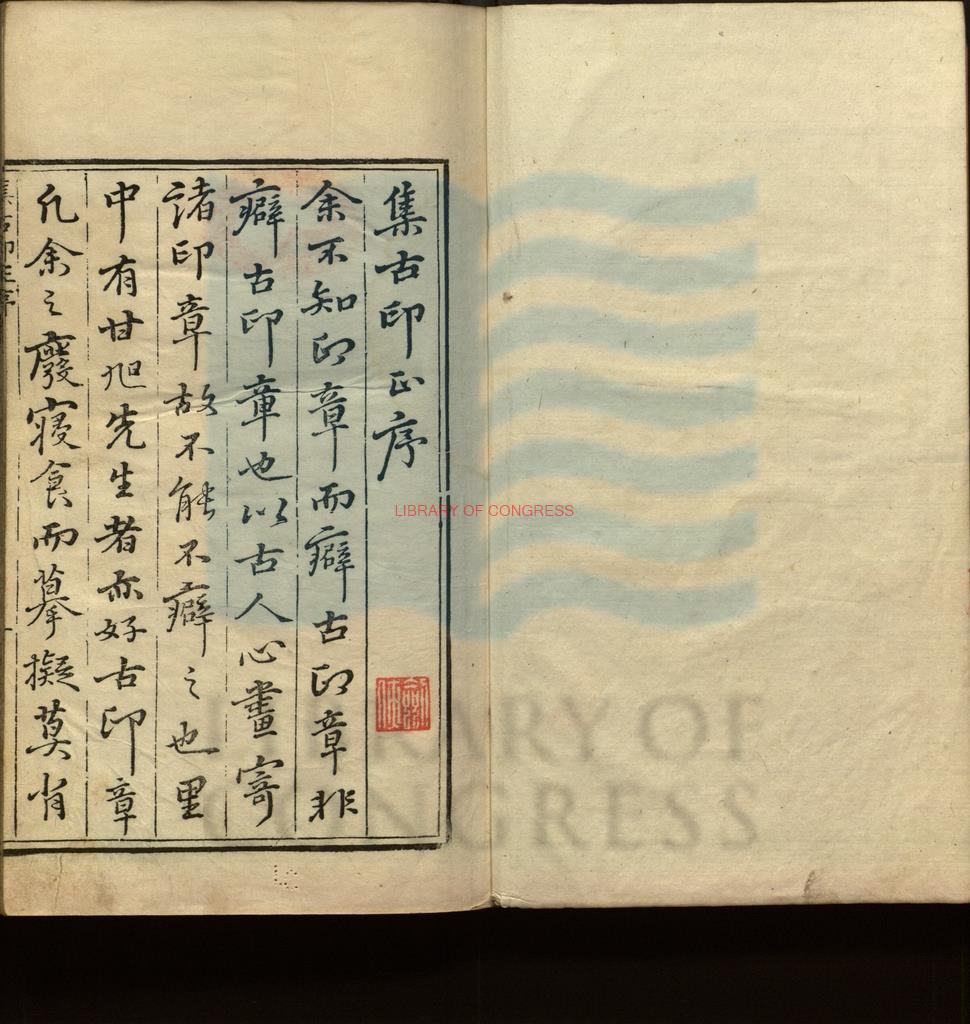 集古印正序
余不知印章而癖古印章非
癖古印章也以古人心畫寄
諸印章故不能不癖之也里
中有甘旭先生者亦好古印章
凡余之廢寢食而摹擬莫肖
集古印正序
LIBRARY OF CONGRESS
LIBRARY OF
CONGRESS